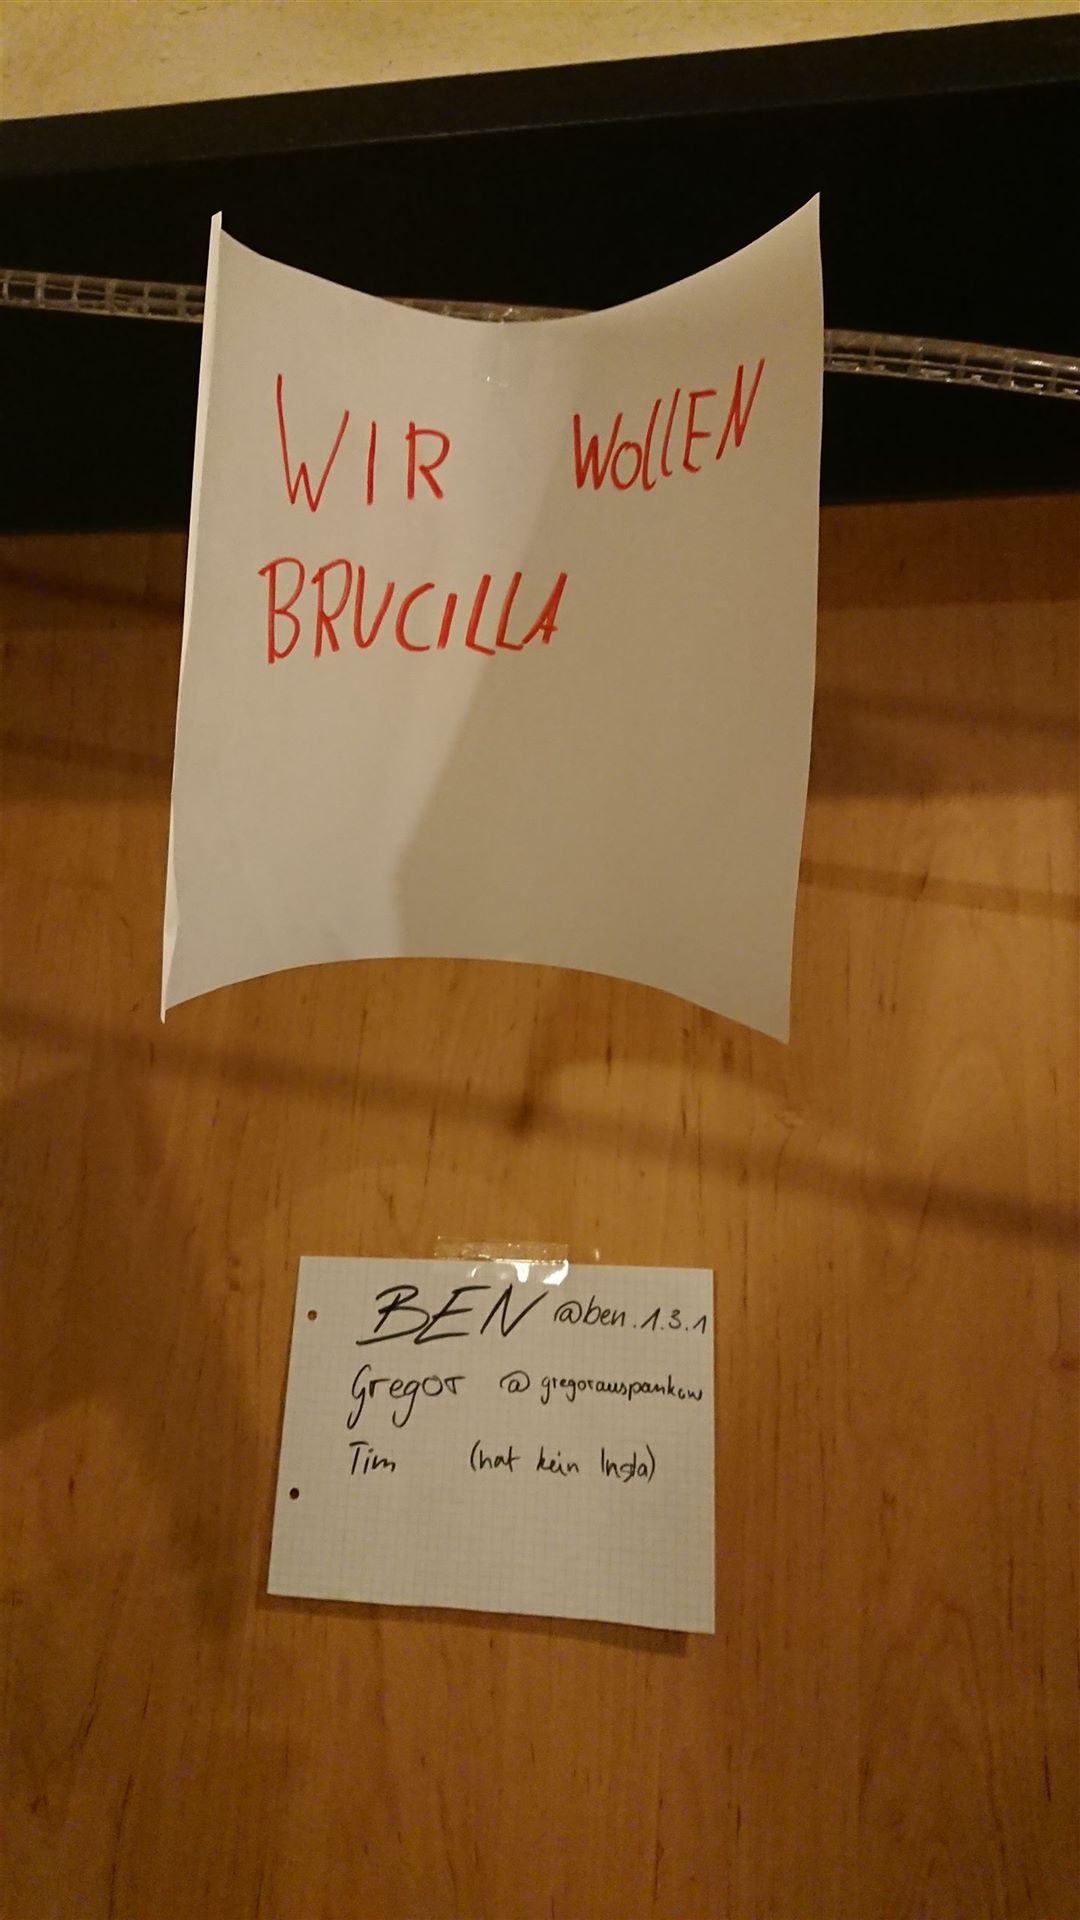 WIR WOLLEN
BRUCILLA
BEN @ben.1.3.1
Gregor @gregorauspankow
Tim (hat kein Insta)